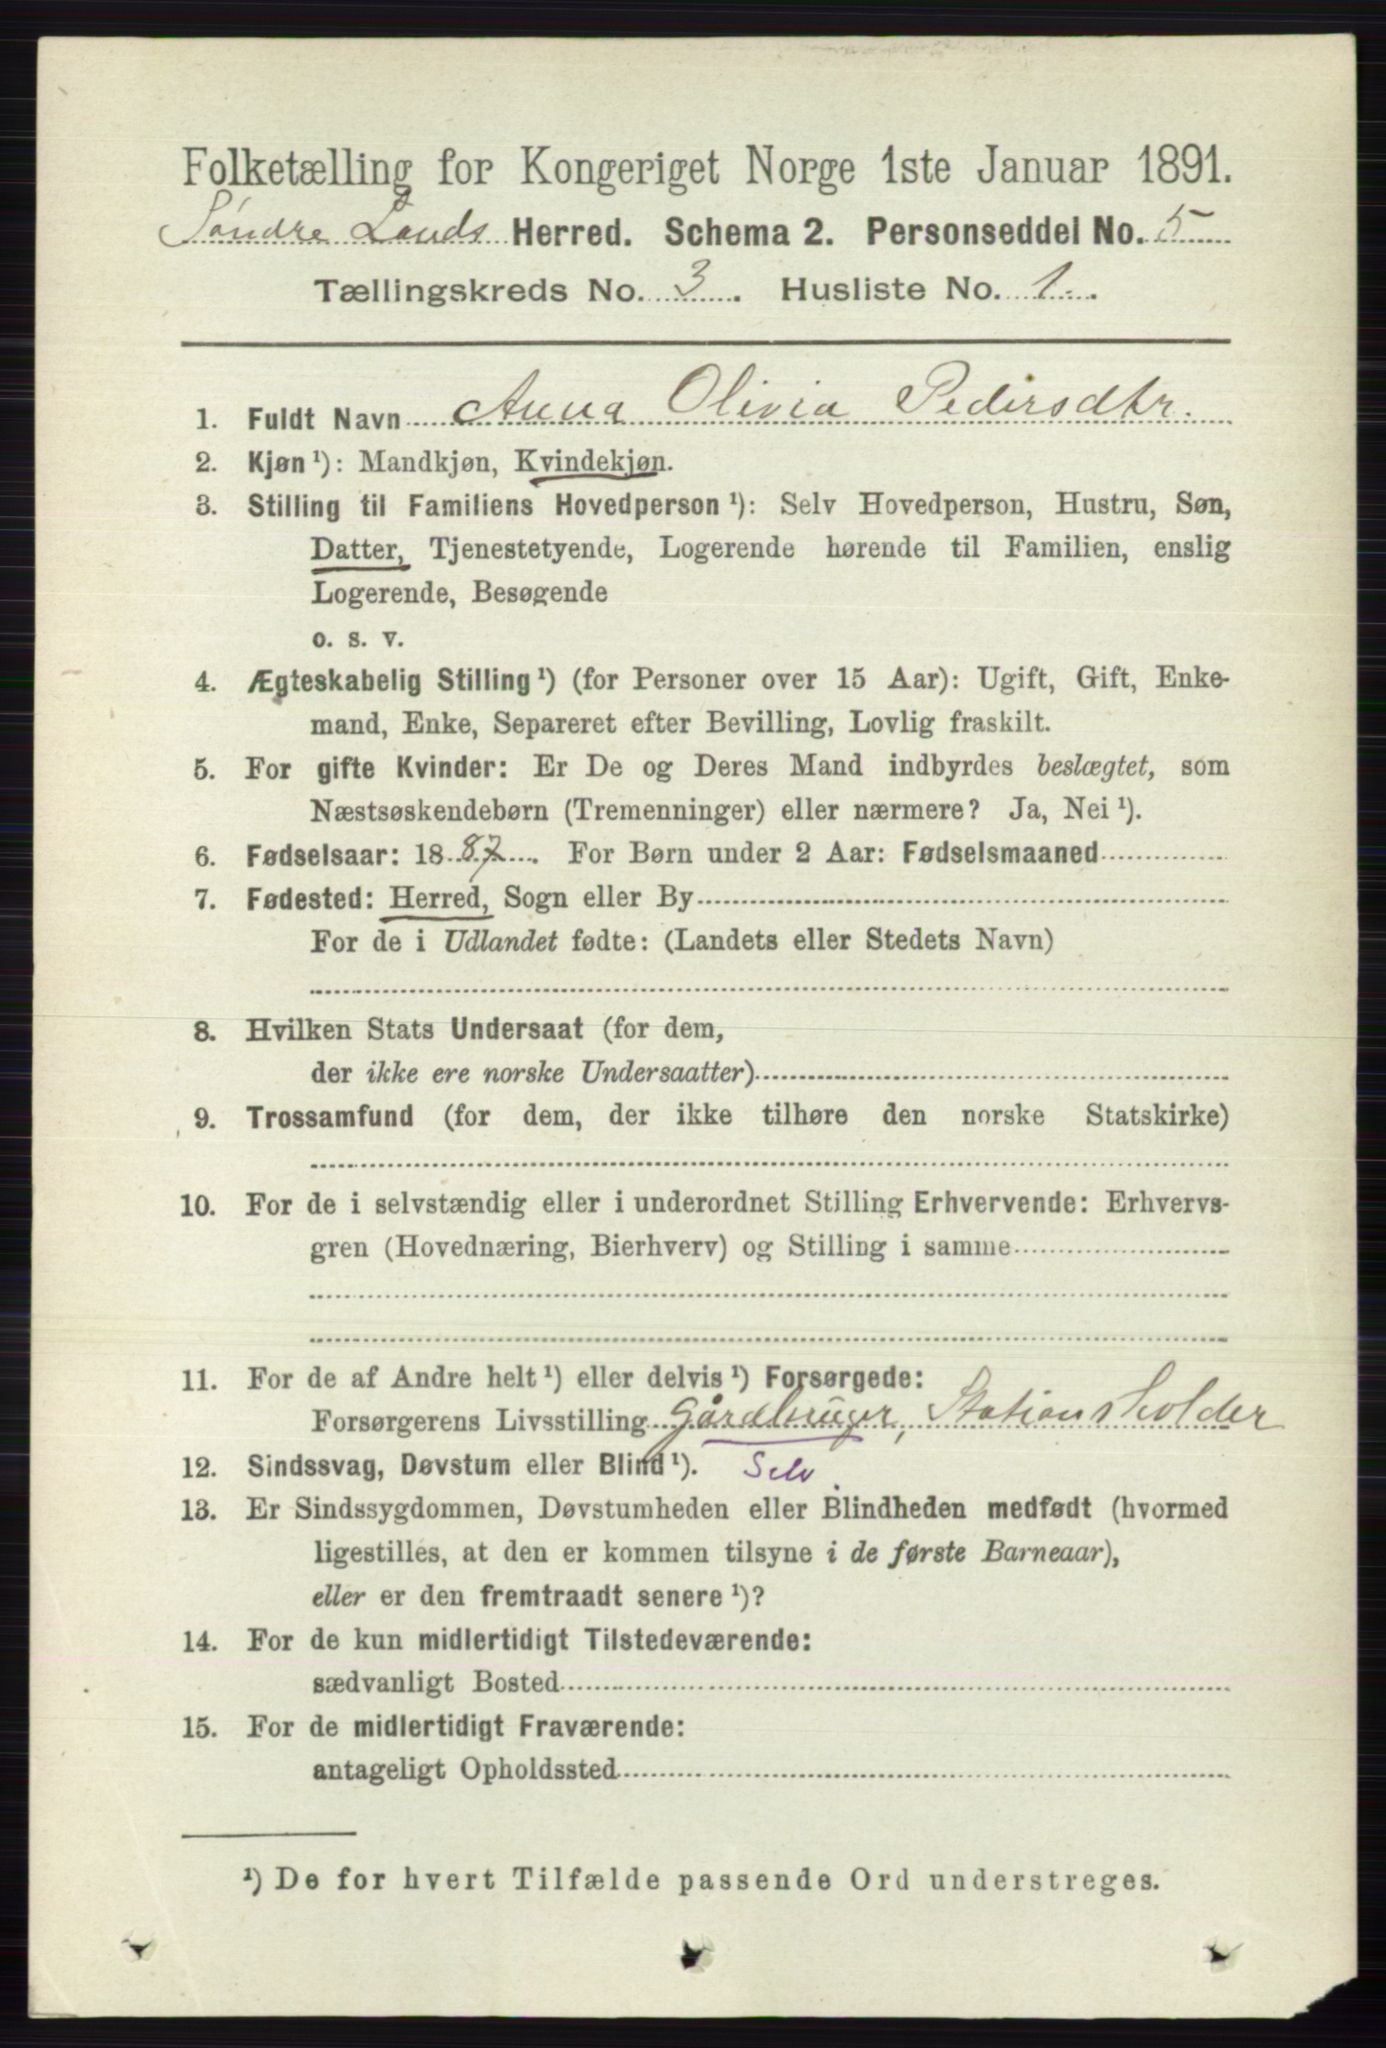 Folketælling for Kongeriget Norge 1ste Januar 1891.
Søndre Lands Herred. Schema 2. Personseddel No. 5
Tællingskreds No. 3. Husliste No. 1.
1. Fuldt Navn Anna Olivia Pedersdtr.
2. Kjøn ¹): Mandkjøn, Kvindekjøn.
3. Stilling til Familiens Hovedperson ¹): Selv Hovedperson, Hustru, Søn,
Datter, Tjenestetyende, Logerende hørende til Familien, enslig
Logerende, Besøgende
o. s. v.
4. Ægteskabelig Stilling ¹) (for Personer over 15 Aar): Ugift, Gift, Enke-
mand, Enke, Separeret efter Bevilling, Lovlig fraskilt.
5. For gifte Kvinder: Er De og Deres Mand indbyrdes beslægtet, som
Næstsøskendebørn (Tremenninger) eller nærmere? Ja, Nei ¹).
6. Fødselsaar: 1887. For Børn under 2 Aar: Fødselsmaaned
7. Fødested: Herred, Sogn eller By
For de i Udlandet fødte: (Landets eller Stedets Navn)
8. Hvilken Stats Undersaat (for dem,
der ikke ere norske Undersaatter)
9. Trossamfund (for dem, der ikke tilhøre den norske Statskirke)
10. For de i selvstændig eller i underordnet Stilling Erhvervende: Erhvervs-
gren (Hovednæring, Bierhverv) og Stilling i samme
11. For de af Andre helt ¹) eller delvis ¹) Forsørgede:
Forsørgerens Livsstilling Gårdbruger, Stationsholder
12. Sindssvag, Døvstum eller Blind ¹). Selv.
13. Er Sindssygdommen, Døvstumheden eller Blindheden medfødt (hvormed
ligestilles, at den er kommen tilsyne i de første Barneaar),
eller er den fremtraadt senere ¹)?
14. For de kun midlertidigt Tilstedeværende:
sædvanligt Bosted
15. For de midlertidigt Fraværende:
antageligt Opholdssted
¹) De for hvert Tilfælde passende Ord understreges.